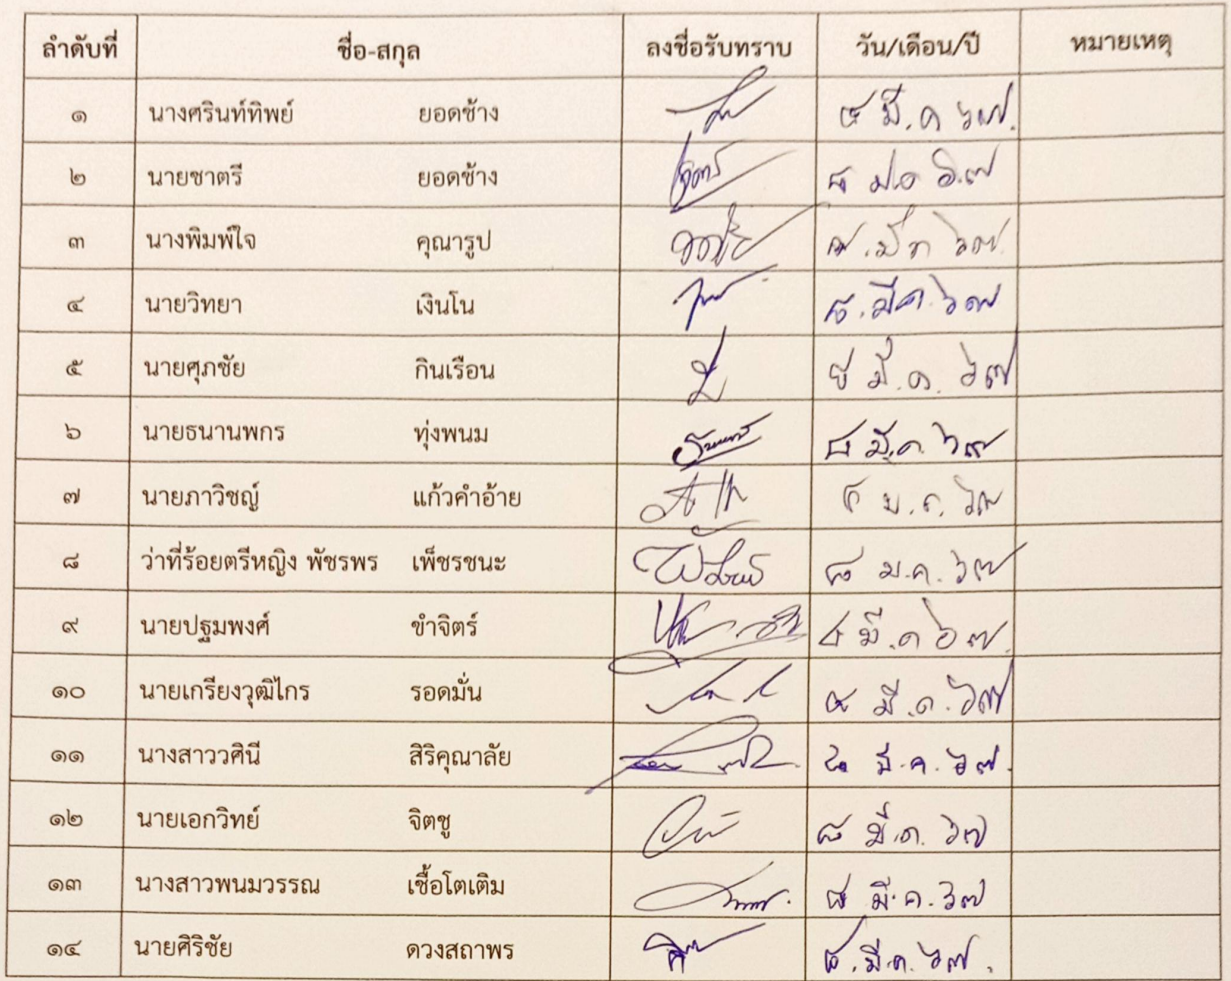 ลำดับที่ ชื่อ-สกุล ลงชื่อรับทราบ วัน/เดือน/ปี หมายเหตุ
๑ นางศรินท์ทิพย์ ยอดช้าง ๘ มี.ค ๖๗.
๒ นายชาตรี ยอดช้าง ๘ ม.ค ๖๗
๓ นางพิมพ์ใจ คุณารูป ๘ .มี ค ๖๗.
๔ นายวิทยา เงินโน ๘. มีค. ๖๗
๕ นายศุภชัย กินเรือน ๘ มี.ค. ๖๗
๖ นายธนานพกร ทุ่งพนม ๘ มี.ค ๖๗
๗ นายภาวิชญ์ แก้วคำอ้าย ๘ ม.ค. ๖๗
๘ ว่าที่ร้อยตรีหญิง พัชรพร เพ็ชรชนะ ๘ ม.ค. ๖๗
๙ นายปฐมพงศ์ ขำจิตร์ ๘ มี.ค ๖๗.
๑๐ นายเกรียงวุฒิไกร รอดมั่น ๘ มี.ค. ๖๗
๑๑ นางสาววศินี สิริคุณาลัย ๘ มี.ค. ๖๗.
๑๒ นายเอกวิทย์ จิตชู ๘ มี.ค. ๖๗
๑๓ นางสาวพนมวรรณ เชื้อโตเติม ๘ มี.ค. ๖๗
๑๔ นายศิริชัย ดวงสถาพร ๘. มี.ค. ๖๗.